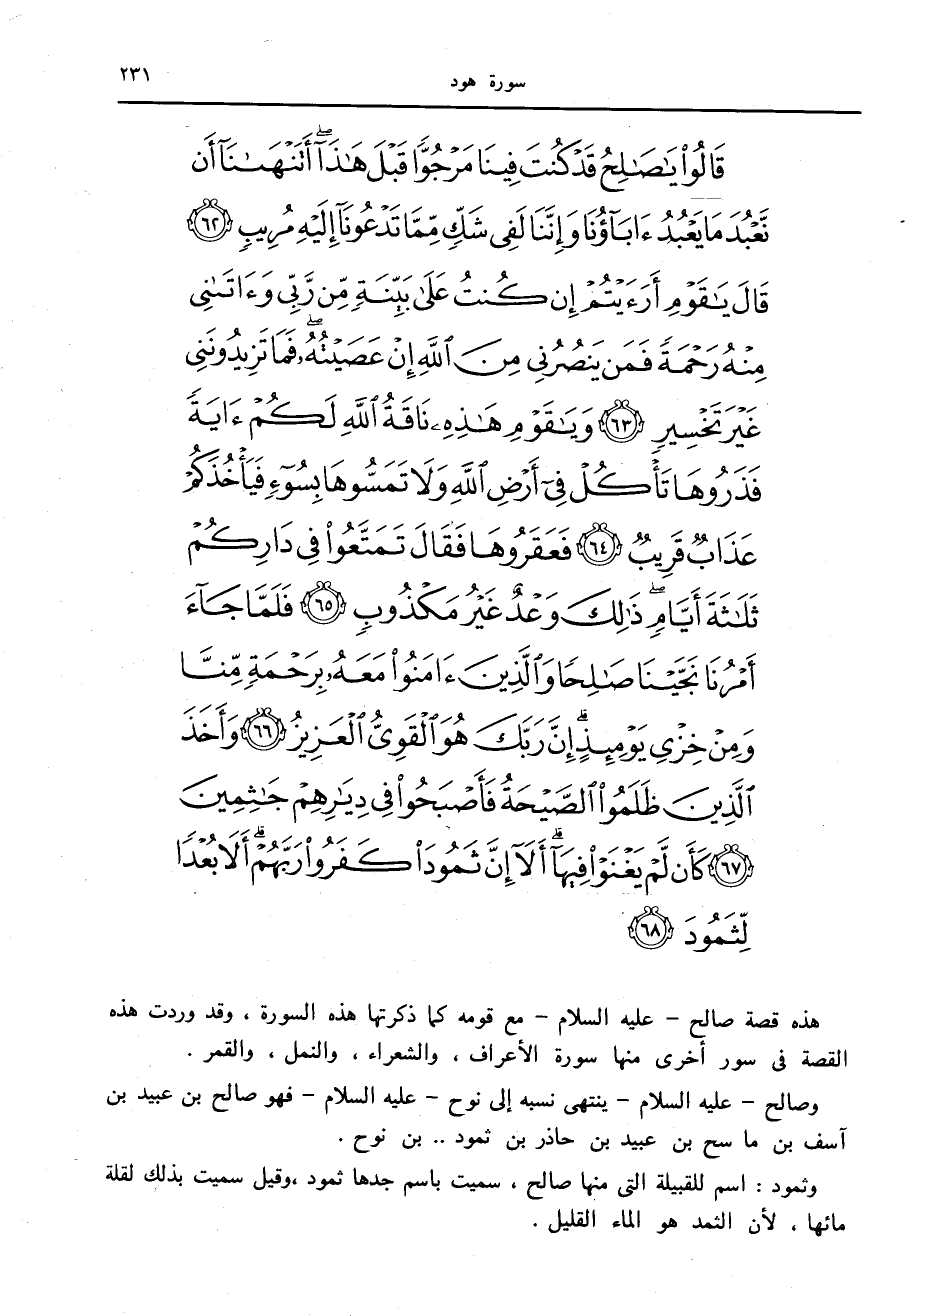 سورة هود ٢٣١
قَالُوا۟ يَـٰصَـٰلِحُ قَدْ كُنتَ فِينَا مَرْجُوًّا قَبْلَ هَـٰذَآ ۖ أَتَنْهَىٰنَآ أَن
نَّعْبُدَ مَا يَعْبُدُ ءَابَآؤُنَا وَإِنَّنَا لَفِى شَكٍّ مِّمَّا تَدْعُونَآ إِلَيْهِ مُرِيبٍ ٦٢
قَالَ يَـٰقَوْمِ أَرَءَيْتُمْ إِن كُنتُ عَلَىٰ بَيِّنَةٍ مِّن رَّبِّى وَءَاتَىٰنِى
مِنْهُ رَحْمَةً فَمَن يَنصُرُنِى مِنَ ٱللَّهِ إِنْ عَصَيْتُهُۥ ۖ فَمَا تَزِيدُونَنِى
غَيْرَ تَخْسِيرٍ ٦٣ وَيَـٰقَوْمِ هَـٰذِهِۦ نَاقَةُ ٱللَّهِ لَكُمْ ءَايَةً
فَذَرُوهَا تَأْكُلْ فِىٓ أَرْضِ ٱللَّهِ وَلَا تَمَسُّوهَا بِسُوٓءٍ فَيَأْخُذَكُمْ
عَذَابٌ قَرِيبٌ ٦٤ فَعَقَرُوهَا فَقَالَ تَمَتَّعُوا۟ فِى دَارِكُمْ
ثَلَـٰثَةَ أَيَّامٍ ۖ ذَٰلِكَ وَعْدٌ غَيْرُ مَكْذُوبٍ ٦٥ فَلَمَّا جَآءَ
أَمْرُنَا نَجَّيْنَا صَـٰلِحًا وَٱلَّذِينَ ءَامَنُوا۟ مَعَهُۥ بِرَحْمَةٍ مِّنَّا
وَمِنْ خِزْىِ يَوْمِئِذٍ ۗ إِنَّ رَبَّكَ هُوَ ٱلْقَوِىُّ ٱلْعَزِيزُ ٦٦ وَأَخَذَ
ٱلَّذِينَ ظَلَمُوا۟ ٱلصَّيْحَةُ فَأَصْبَحُوا۟ فِى دِيَـٰرِهِمْ جَـٰثِمِينَ
٦٧ كَأَن لَّمْ يَغْنَوْا۟ فِيهَآ ۗ أَلَآ إِنَّ ثَمُودَا۟ كَفَرُوا۟ رَبَّهُمْ ۗ أَلَا بُعْدًا
لِّثَمُودَ ٦٨
هذه قصة صالح – عليه السلام – مع قومه كما ذكرتها هذه السورة ، وقد وردت هذه
القصة فى سور أخرى منها سورة الأعراف ، والشعراء ، والنمل ، والقمر .
وصالح – عليه السلام – ينتهى نسبه إلى نوح – عليه السلام – فهو صالح بن عبيد بن
آسف بن ما سح بن عبيد بن حاذر بن ثمود .. بن نوح .
وثمود : اسم للقبيلة التى منها صالح ، سميت باسم جدها ثمود ،وقيل سميت بذلك لقلة
مائها ، لأن الثمد هو الماء القليل .